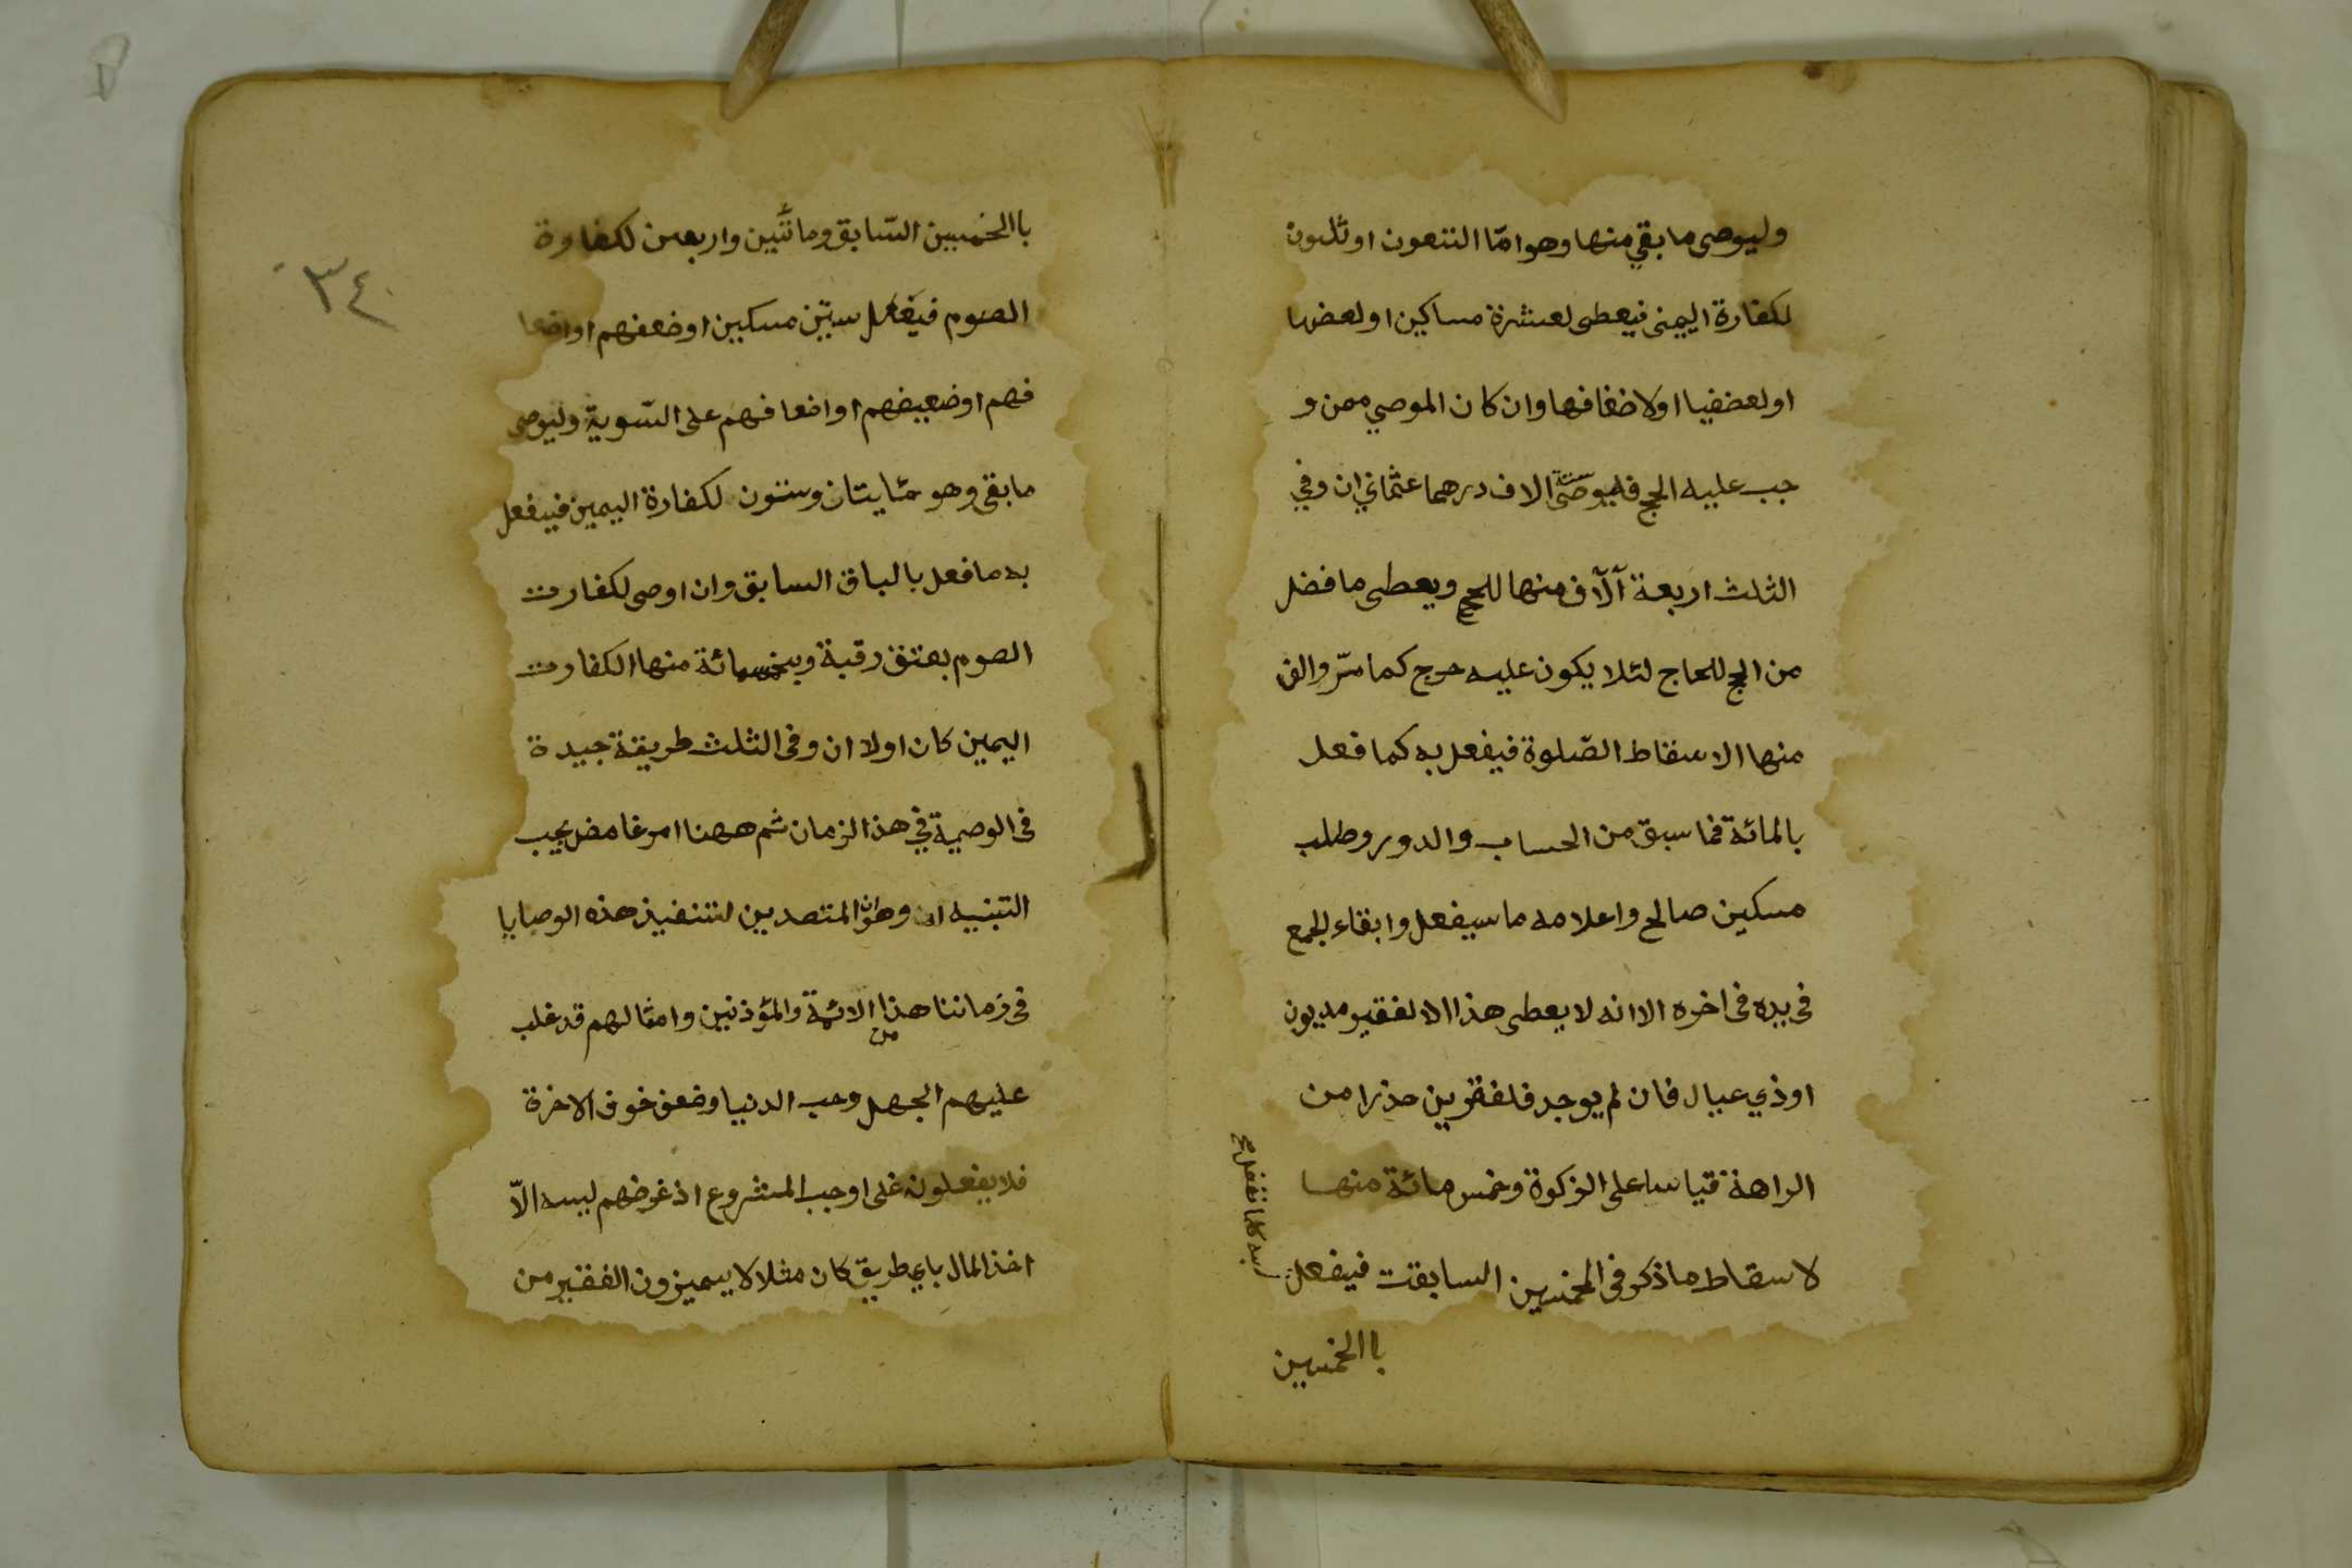 وليوصى ما بقي منها وهو امّا التنعون او ثلثون
لكفارة اليمنى فيعطى لعشرة مساكين او لعضها
او لعضفيا اولاضغافها وان كان الموصي ممن و
جب عليه الحج فليوصّى ستة الاف درهما عثماني ان وفي
الثلث اربعة آلآف منها للحج ويعطى ما فضل
من الحج للحاج لئلا يكون عليه حرج كما مرّ والف
منها الاسقاط الصّلوة فيفعل به كما فعل
بالمائة فما سبق من الحساب والدور وطلب
مسكين صالح واعلامه ما سيفعل وابقاء الجمع
فى يده فى اخره الا انه لا يعطى هذا الا لفقير مديون
اوذي عيال فان لم يوجد فلفقرين حذرا من
الراهة قياسا على الزكوة وخمس مائة منها
لاسقاط ما ذكر فى الخمسين السابقت فيفعل
باالخمسين
باالخمسين السّابق ومائتين واربعين لكفاوة
الصوم فيفعل ستين مسكين او ضعفهم او اضعا
فهم او ضعيفهم او اضعا فهم على السّوية وليوصى
ما بقى وهو مئايتان وستون لكفارة اليمين فيفعل
به ما فعل بالباق السابق وان اوصى لكفارت
الصوم بعتق رقبة وبخمسمائة منها الكفارت
اليمين كان اولا ان وفى الثلث طريقة جيدة
فى الوصية في هذا الزمان ثم ههنا امر غامض يجب
التنبيه له وهو ان المتصدين لتنفيذ هذه الوصايا
فى زماننا هذا من الائمة والمؤذنين وامثالهم قد غلب
عليهم الجهل وحب الدنيا وضعف خوف الاخرة
فلا يفعلونه على اوجب المشروع اذ غرضهم ليسه الاّ
اخذ المال باي طريق كان مثلا لا يميزون الفقير من
٣٤